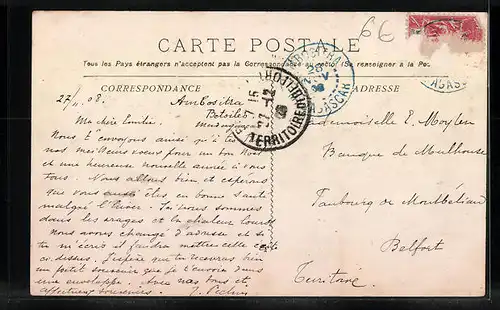 6E
CARTE POSTALE
Tous les Pays étrangers n'acceptent pas la Correspondance au recto. (Se renseigner à la Poste)
CORRESPONDANCE
ADRESSE
27/11.08. Ambositra
Betsileo
Ma chère
Nous t'envoyons ainsi qu'à
meilleurs voeux pour un bon Noël
et une heureuse nouvelle année à vous
tous. Nous allons bien et espérons
que vous aussi êtes en bonne santé
malgré l'hiver. Ici nous sommes
dans les orages et la chaleur lourde
Nous avons changé d'adresse et si
tu m'écris il faudra mettre celle
ci-dessus. J'espère que tu recevras bien
un petit souvenir que je t'envoie dans
une enveloppe. Avec nos bons et
affectueux souvenirs.
Mademoiselle E.
Banque de Mulhouse
Faubourg de Montbéliard
Belfort
Territoire
TERRITOIRE DE BELFORT